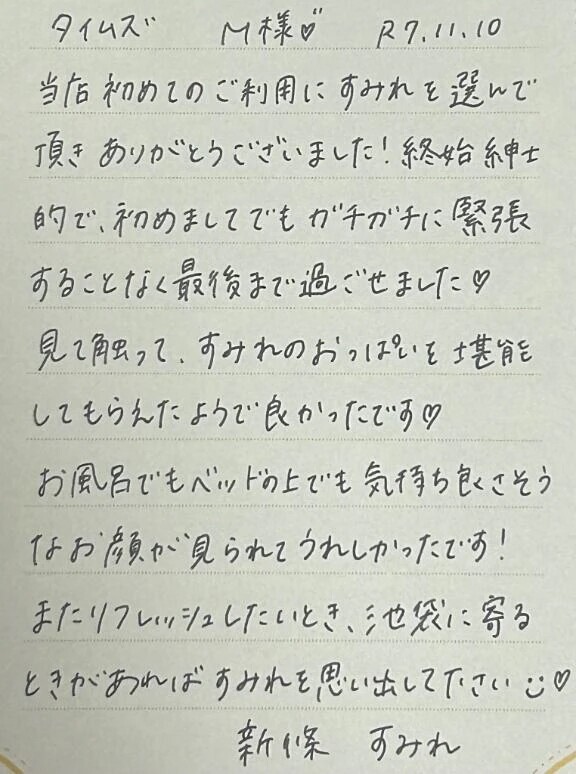 タイムズ M様♡" R7.11.10
当店初めてのご利用にすみれを選んで
頂きありがとうございました！終始紳士
的で、初めましてでもガチガチに緊張
することなく最後まで過ごせました♡
見て触って、すみれのおっぱいを堪能
してもらえたようで良かったです♡
お風呂でもベッドの上でも気持ち良さそう
なお顔が見られてうれしかったです！
またリフレッシュしたいとき、池袋に寄る
ときがあればすみれを思い出して下さい☺♡
新條 すみれ